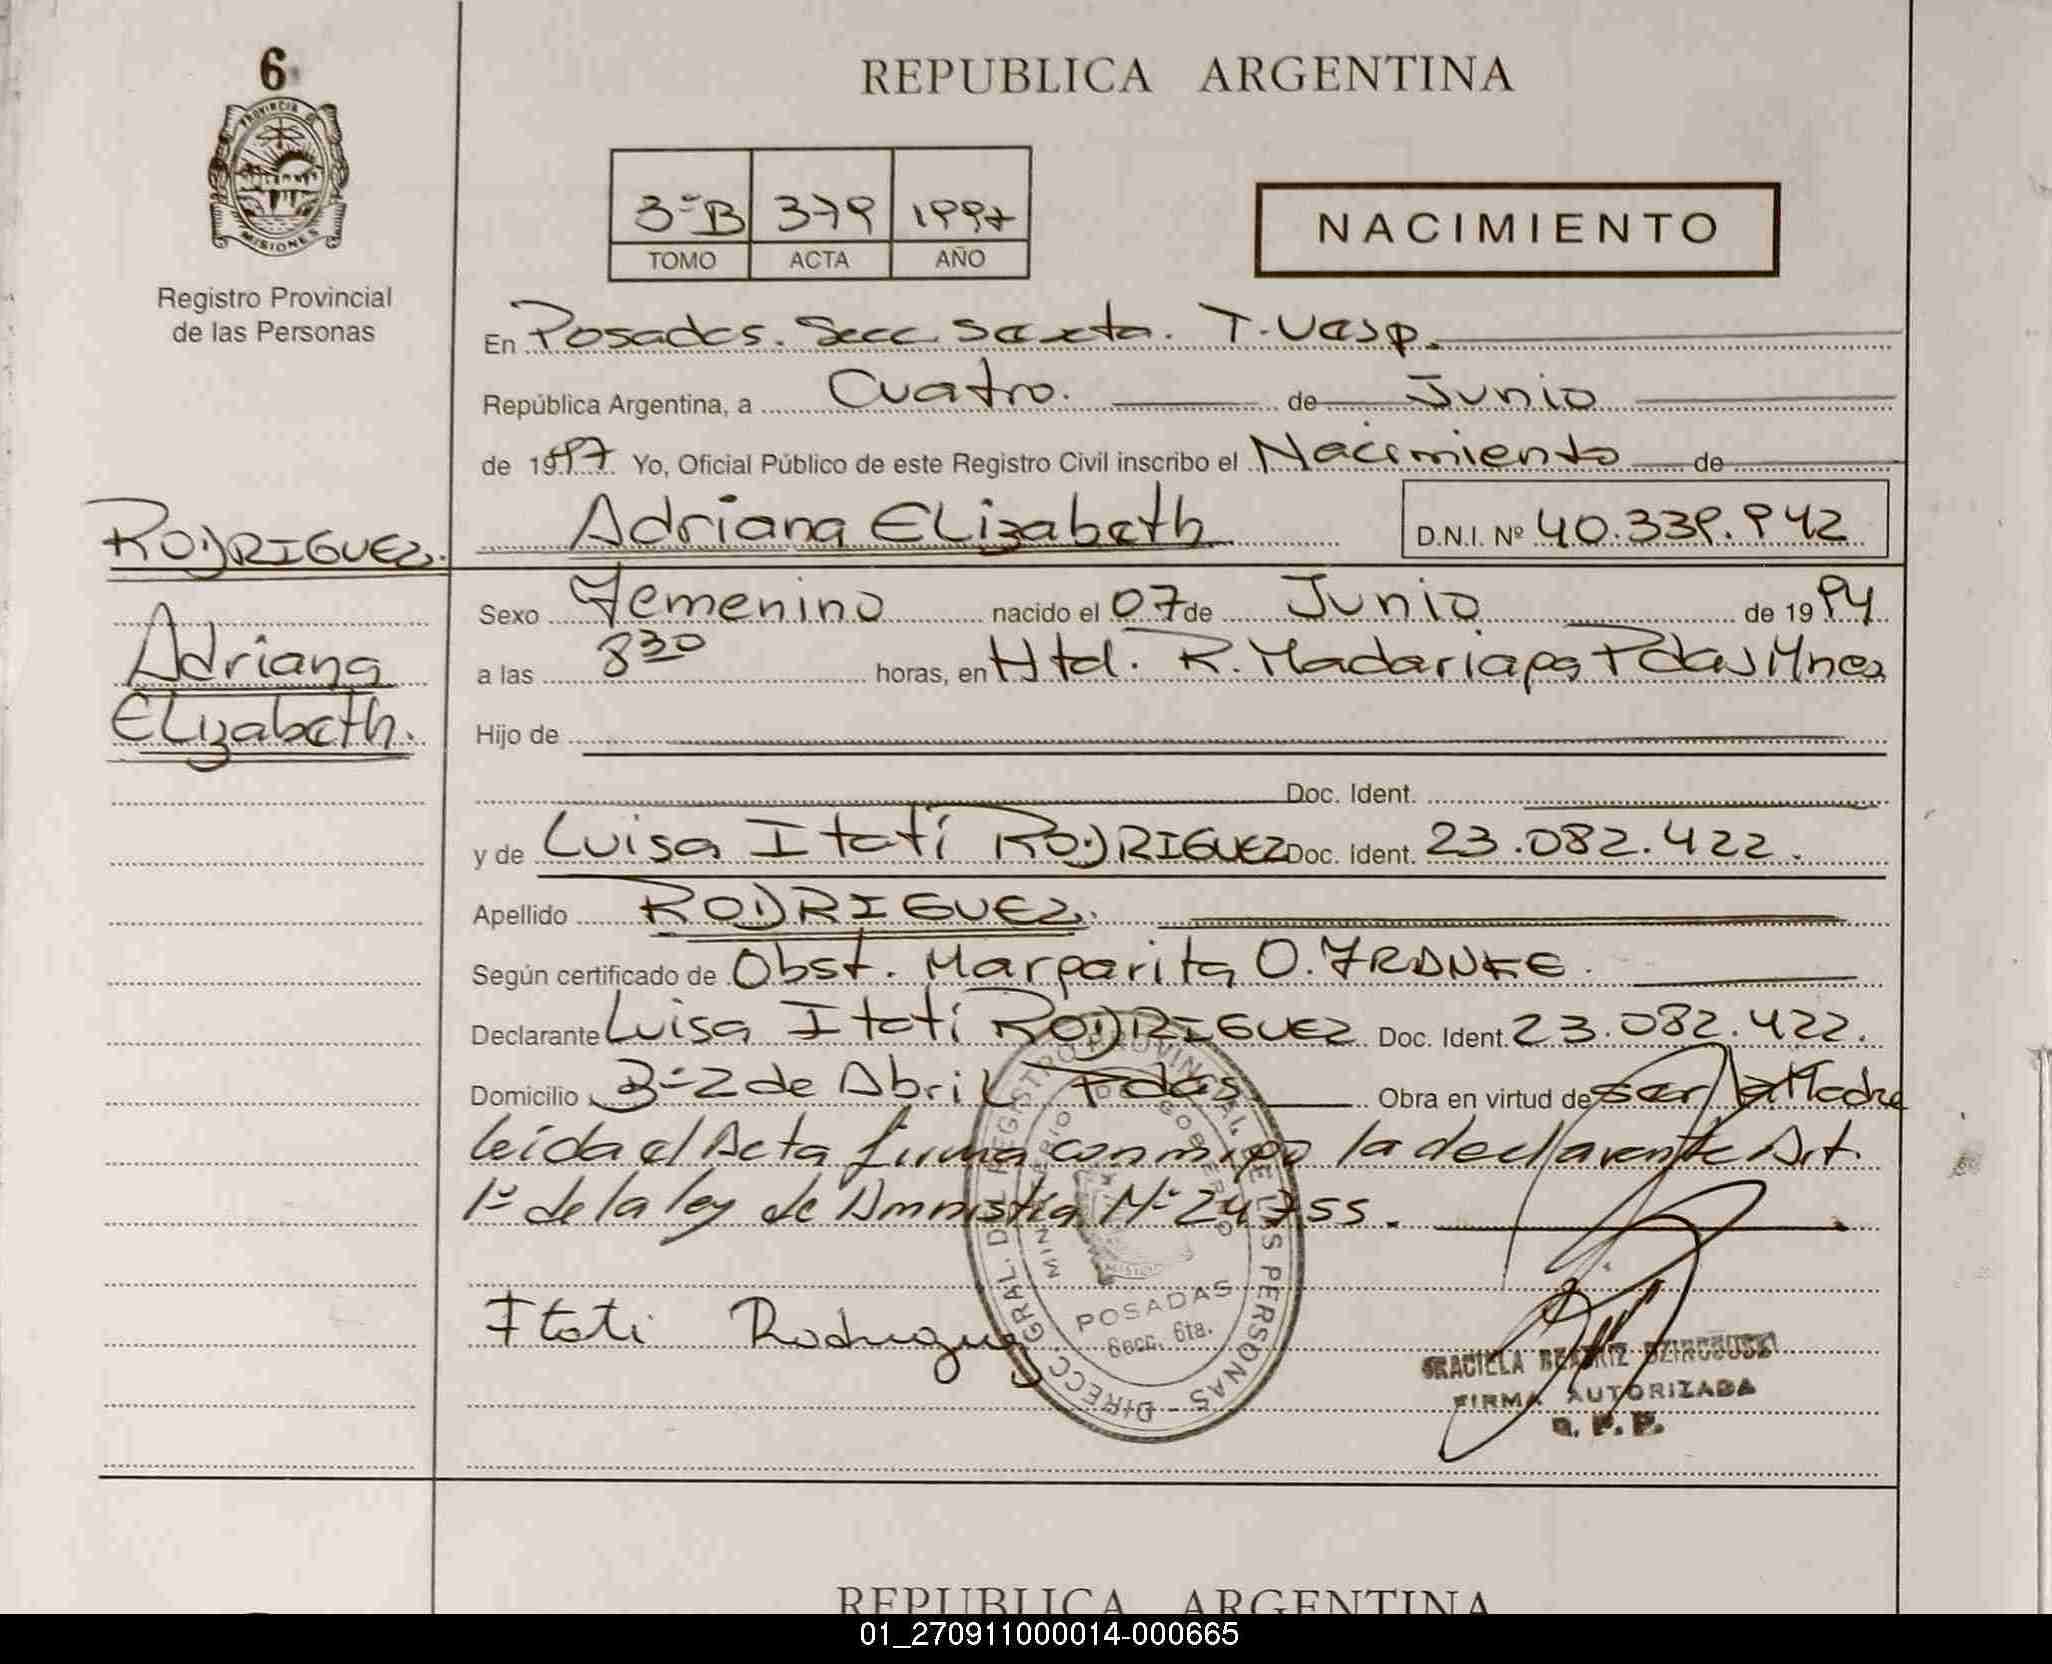 6
PROVINCIA DE
MISIONES
Registro Provincial
de las Personas
REPUBLICA ARGENTINA
3ºB 379 1997
TOMO ACTA AÑO
NACIMIENTO
En Posadas. Secc Sexta. T. Vesp.
República Argentina, a Cuatro. de Junio
de 1997 Yo, Oficial Público de este Registro Civil inscribo el Nacimiento de
RODRIGUEZ.
Adriana ELizabeth D.N.I. Nº 40.339.942
Adriana
ELizabeth.
Sexo Femenino nacido el 07 de Junio de 1994
a las 8 30 horas, en Htal. R. Madariaga Pdas Mnes
Hijo de
Doc. Ident.
y de Luisa Itatí RODRIGUEZ Doc. Ident. 23.082.422.
Apellido RODRIGUEZ.
Según certificado de Obst. Margarita O. FRANKE.
Declarante Luisa Itatí RODRIGUEZ Doc. Ident. 23.082.422.
Domicilio Bº 2 de Abril Pdas. Obra en virtud de ser la Madre
leida el Acta firma conmigo la declarante Art.
1º de la ley de Amnistia Nº 24755.
Itati Rodriguez
DIRECC. GRAL. DEL REGISTRO PROVINCIAL DE LAS PERSONAS
MINISTERIO DE GOBIERNO
MISIONES
POSADAS
Secc. 6ta.
GRACIELA BEATRIZ
FIRMA AUTORIZADA
R. P. P.
REPUBLICA ARGENTINA
01_270911000014-000665